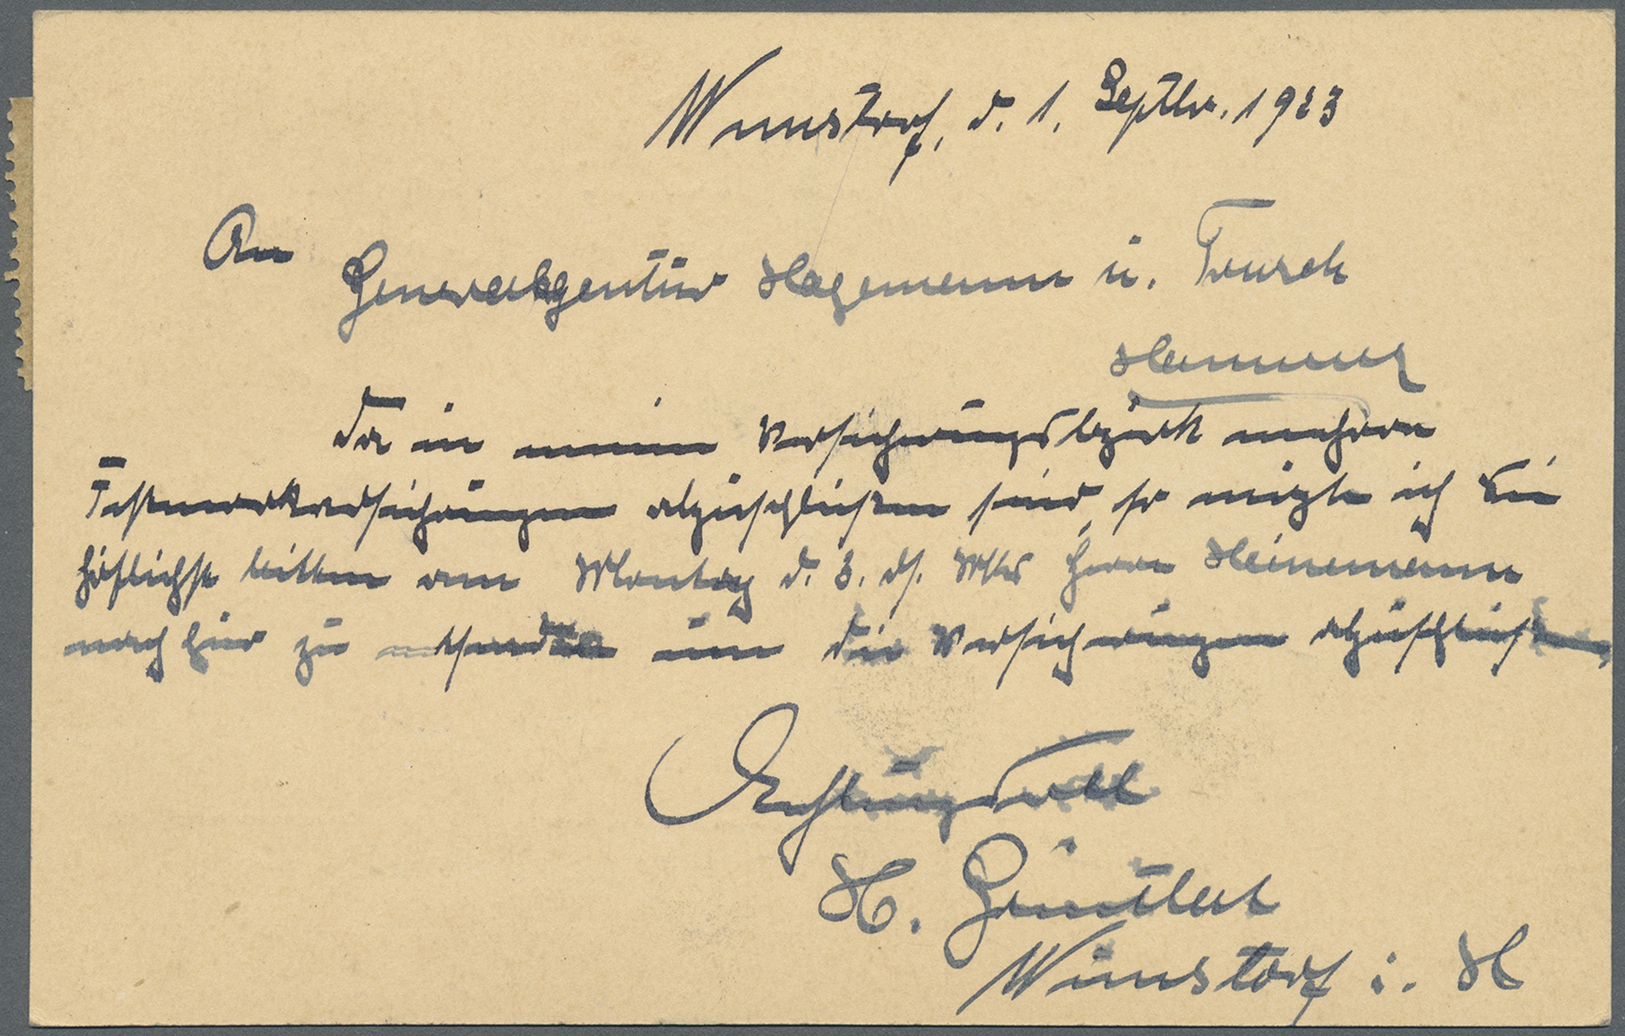 Wunstorf, d. 1. Septbr. 1923
An
Generalagentur Hagemann u. Trusch
Hannover
Da in meinen Versicherungsbezirk mehrere
Festmarkversicherungen abzuschließen sind, so möchte ich Sie
höflichst bitten am Montag d. 3. ds. Mts Herrn Heinemann
nach hier zu entsenden um die Versicherungen abzuschließen.
Achtungsvoll
H.
Wunstorf i. H